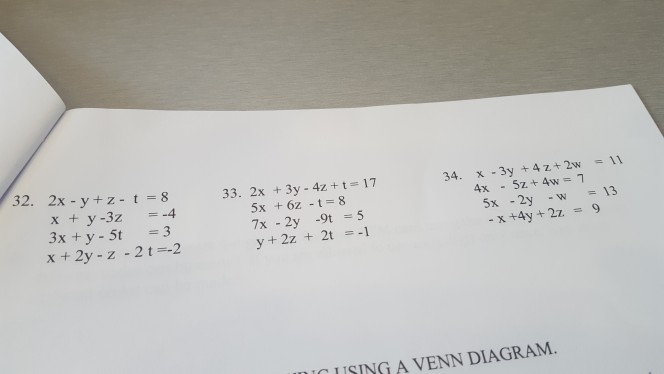 32. 2x - y + z - t = 8
x + y -3z = -4
3x + y - 5t = 3
x + 2y - z - 2 t =-2
33. 2x + 3y - 4z + t = 17
5x + 6z - t = 8
7x - 2y -9t = 5
y + 2z + 2t = -1
34. x - 3y + 4 z + 2w = 11
4x - 5z + 4w = 7
5x - 2y - w = 13
- x +4y + 2z = 9
USING A VENN DIAGRAM.